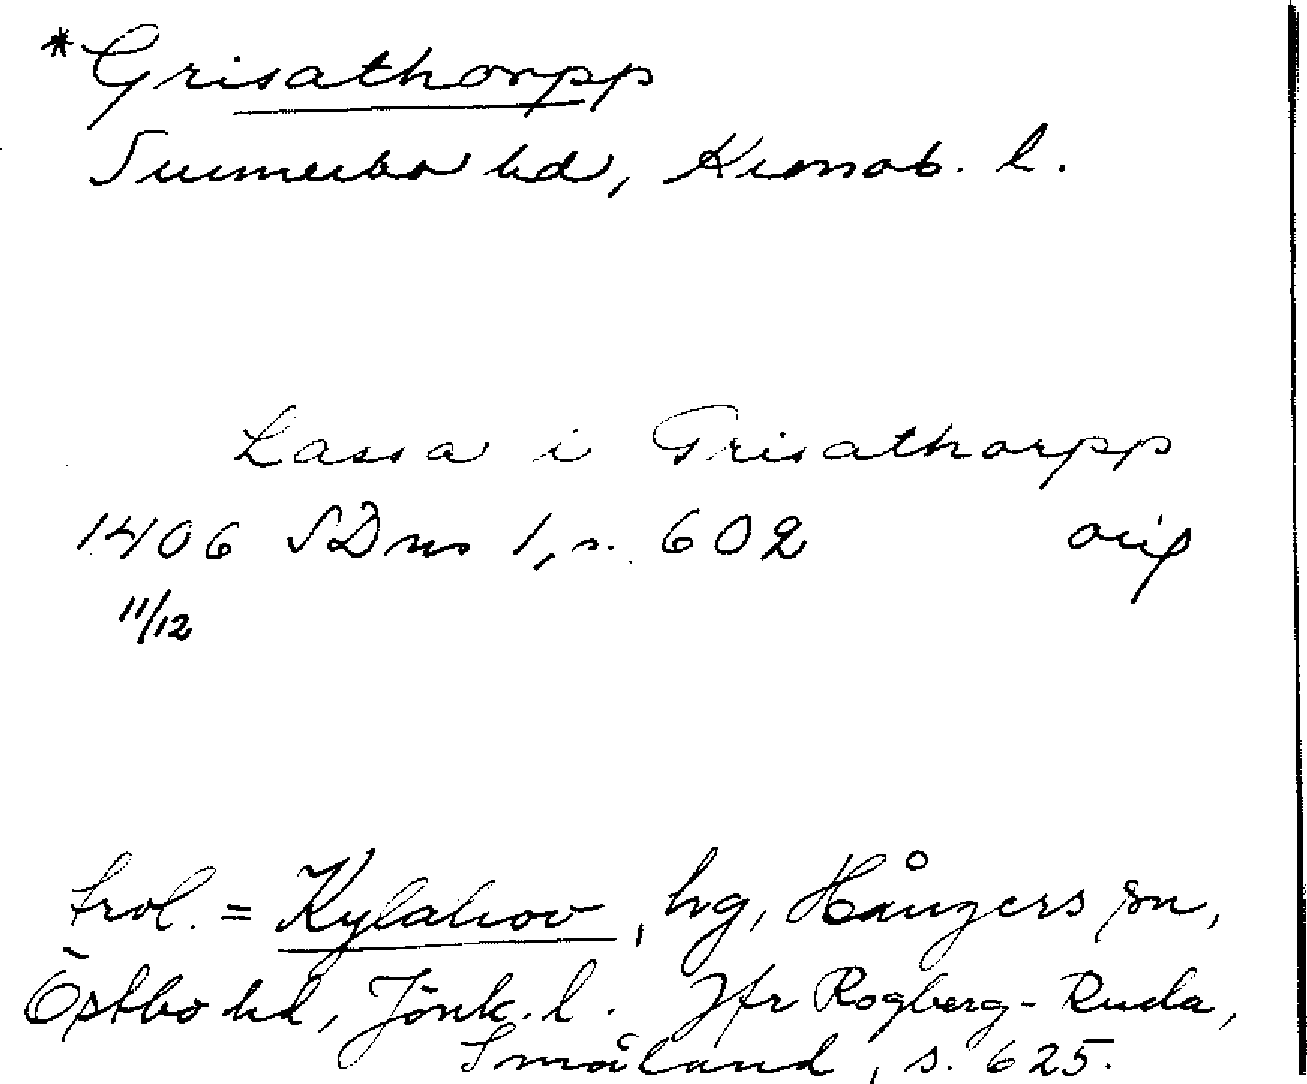 *Grisathorpp
Sunnerbo hd, Kronob. l.
Lassa i Grisathorpp
1406 SDns 1, s. 602 orig
11/12
trol. = Kylahov, hg, Hångers sn,
Östbo hd, Jönk. l. Jfr Rogberg-Ruda,
Småland, s. 625.